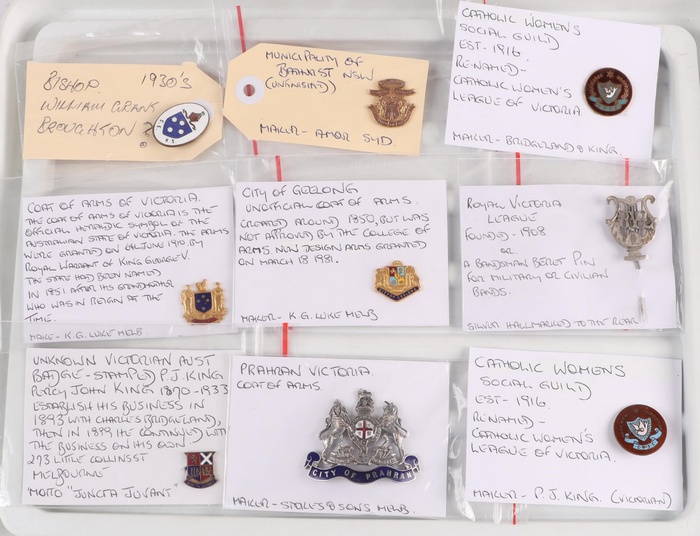 BISHOP 1930'S
WILLIAM GRANT
BROUGHTON ?
MUNICIPALITY OF
BATHURST NSW
(UNONISED)
MAKER - AMOR SYD.
CATHOLIC WOMEN'S
SOCIAL GUILD
EST- 1916.
RE-NAMED-
CATHOLIC WOMEN'S
LEAGUE OF VICTORIA.
MAKER - BRIDGELAND & KING.
COAT OF ARMS OF VICTORIA.
THE COAT OF ARMS OF VICTORIA IS THE
OFFICIAL HERALDIC SYMBOL OF THE
AUSTRALIAN STATE OF VICTORIA. THE ARMS
WERE GRANTED ON 6TH JUNE 1910 BY
ROYAL WARRANT OF KING GEORGE V.
THE STATE HAD BEEN NAMED
IN 1851 AFTER HIS GRANDMOTHER
WHO WAS IN REIGN AT THE
TIME.
MAKE - K.G. LUKE MELB
CITY OF GEELONG
UNOFFICIAL COAT OF ARMS.
CREATED AROUND 1850, BUT WAS
NOT APPROVED BY THE COLLEGE OF
ARMS. NEW DESIGN ARMS GRANTED
ON MARCH 18 1981.
MAKER - K.G. LUKE MELB
ROYAL VICTORIA
LEAGUE
FOUNDED - 1908
OR
A BANDSMAN BERET PIN
FOR MILITARY OR CIVILIAN
BANDS.
SILVER HALLMARKED TO THE REAR
UNKNOWN VICTORIAN AUST
BADGE - STAMPED P.J. KING
PERCY JOHN KING 1870-1933
ESTABLISH HIS BUSINESS IN
1893 WITH CHARLES BRIDGELAND,
THEN IN 1899 HE CONTINUED WITH
THE BUSINESS ON HIS OWN
273 LITTLE COLLINS ST
MELBOURNE
MOTTO "JUNCTA JUVANT"
PRAHRAN VICTORIA.
COAT OF ARMS
CITY OF PRAHRAN
MAKER - STOKES & SONS MELB.
CATHOLIC WOMENS
SOCIAL GUILD
EST - 1916.
RE-NAMED -
CATHOLIC WOMEN'S
LEAGUE OF VICTORIA.
MAKER - P.J. KING. (VICTORIAN)